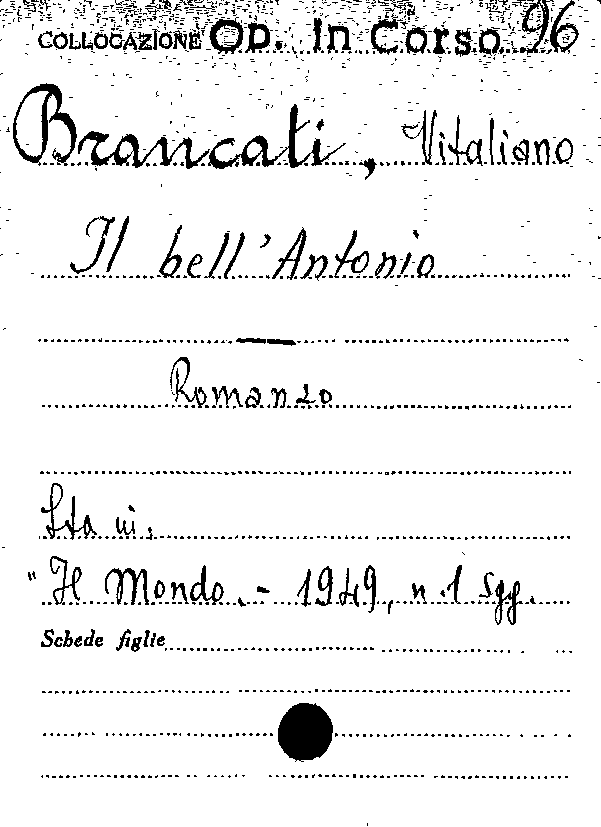 COLLOCAZIONE OP. In Corso 96
Brancati, Vitaliano
Il bell'Antonio
Romanzo
Sta in:
"Il Mondo. - 1949, n.1 sgg.
Schede figlie